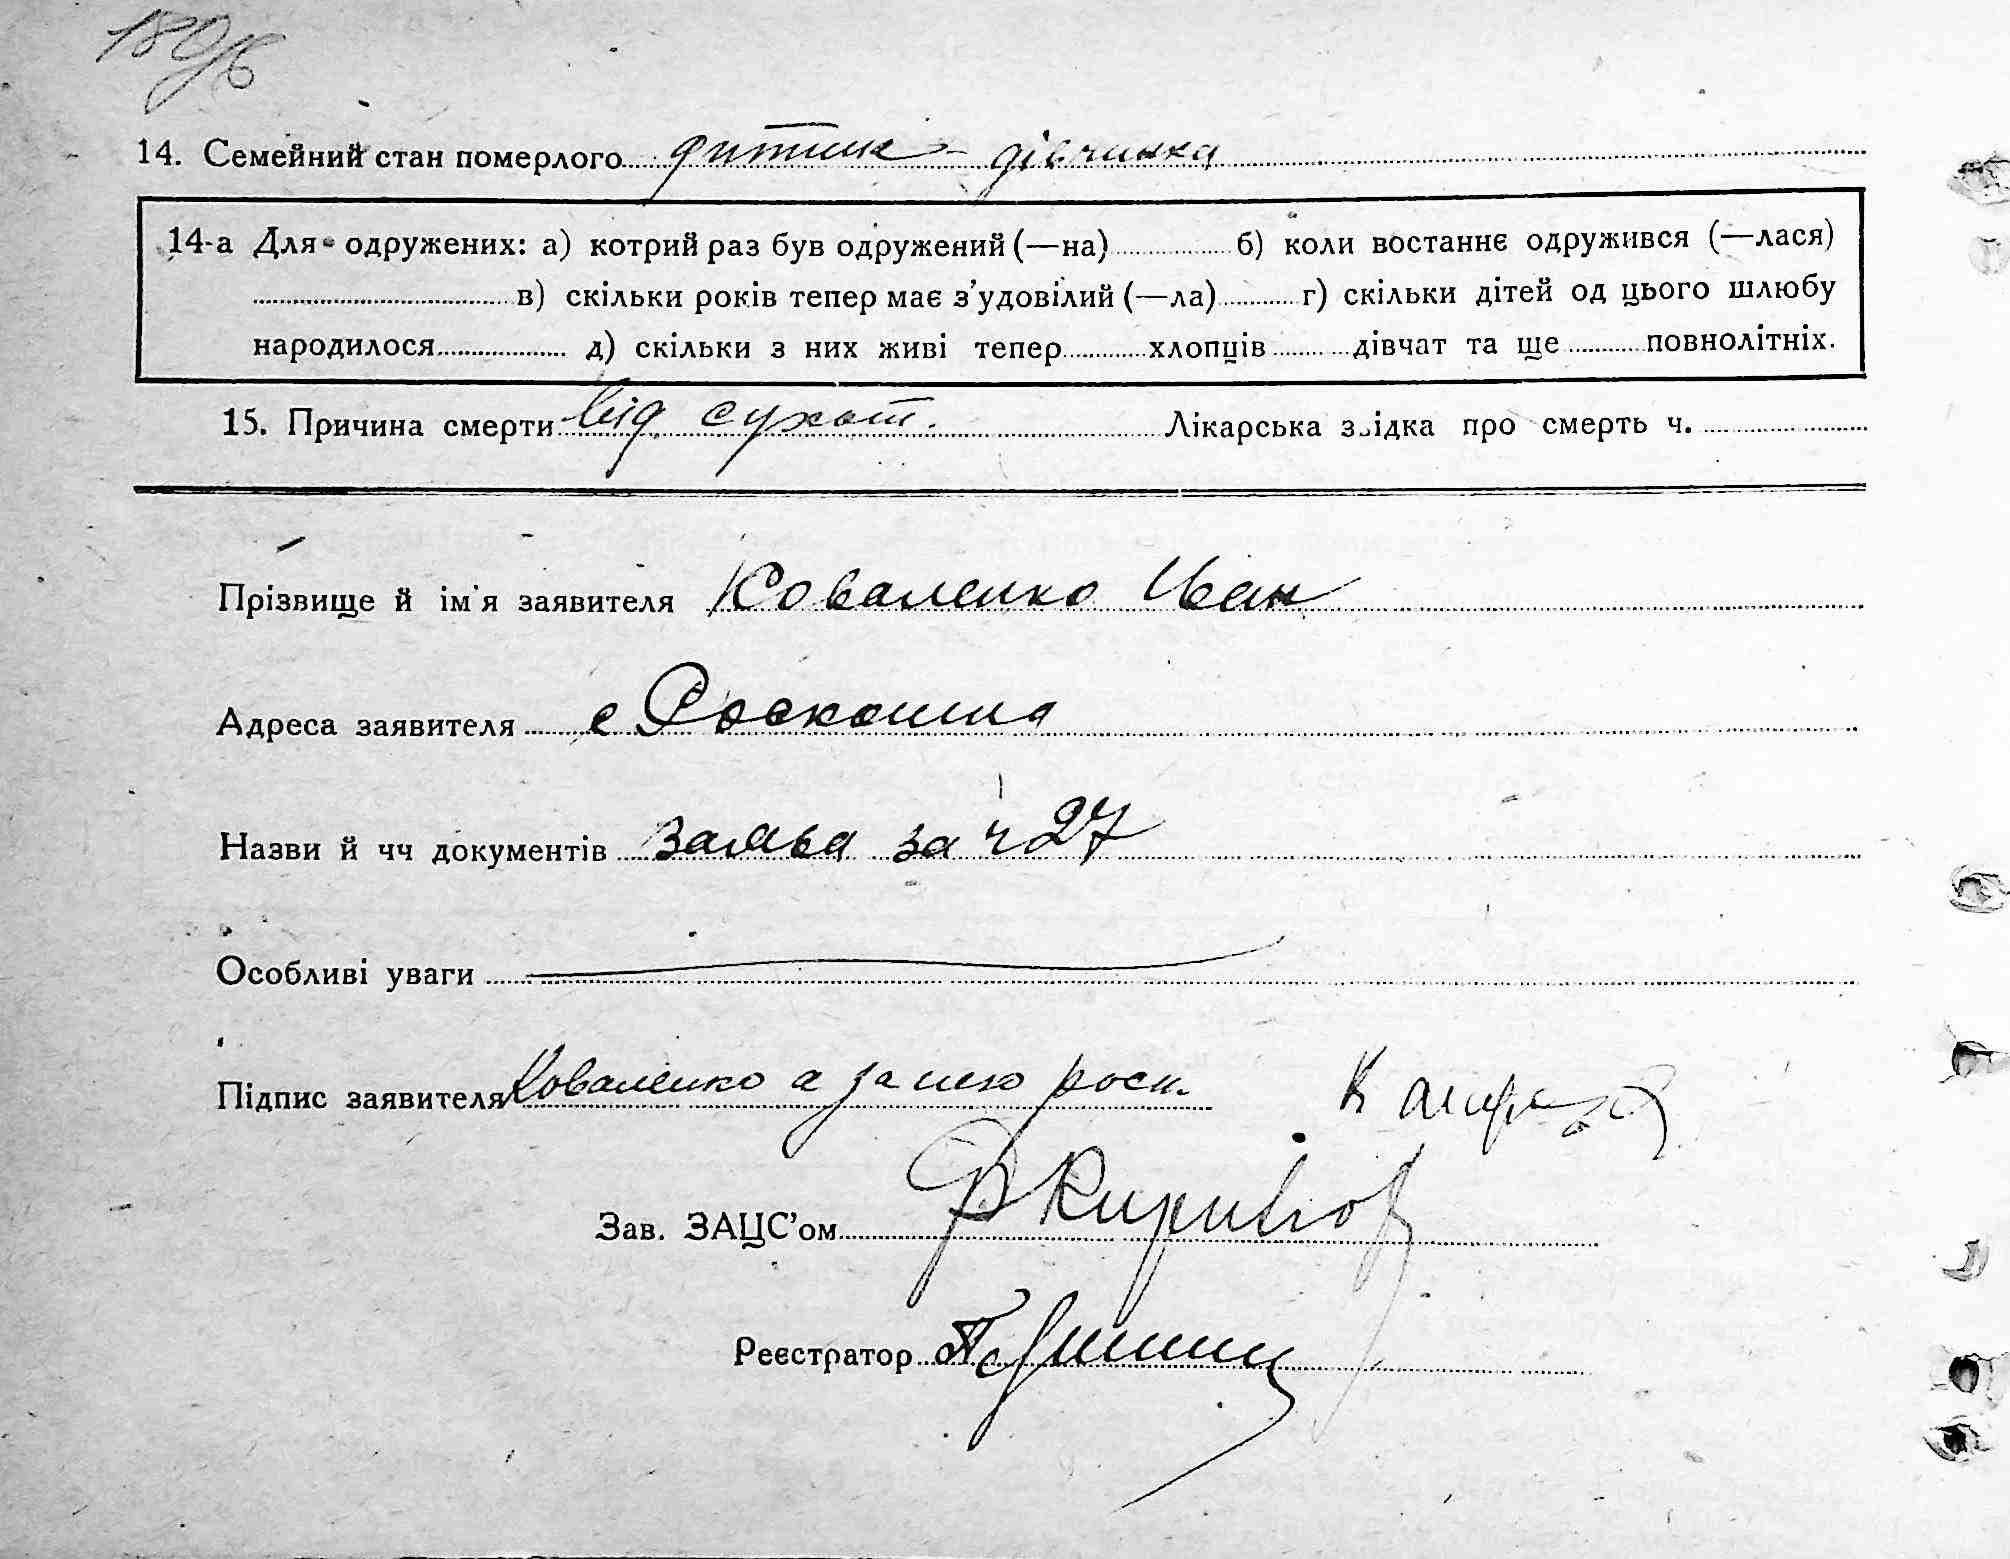 180/б
14. Семейний стан померлого дитина - дівчинка
14-а Для одружених: а) котрий раз був одружений (—на) б) коли востаннє одружився (—лася)
в) скільки років тепер має з’удовілий (—ла) г) скільки дітей од цього шлюбу
народилося д) скільки з них живі тепер хлопців дівчат та ще повнолітніх.
15. Причина смерти від сухот. Лікарська звідка про смерть ч.
Прізвище й ім’я заявителя Коваленко Иван
Адреса заявителя с Роскошна
Назви й чч документів заява за ч 27
Особливі уваги
Підпис заявителя Коваленко а за нею росп.
Зав. ЗАЦС’ом
Реєстратор